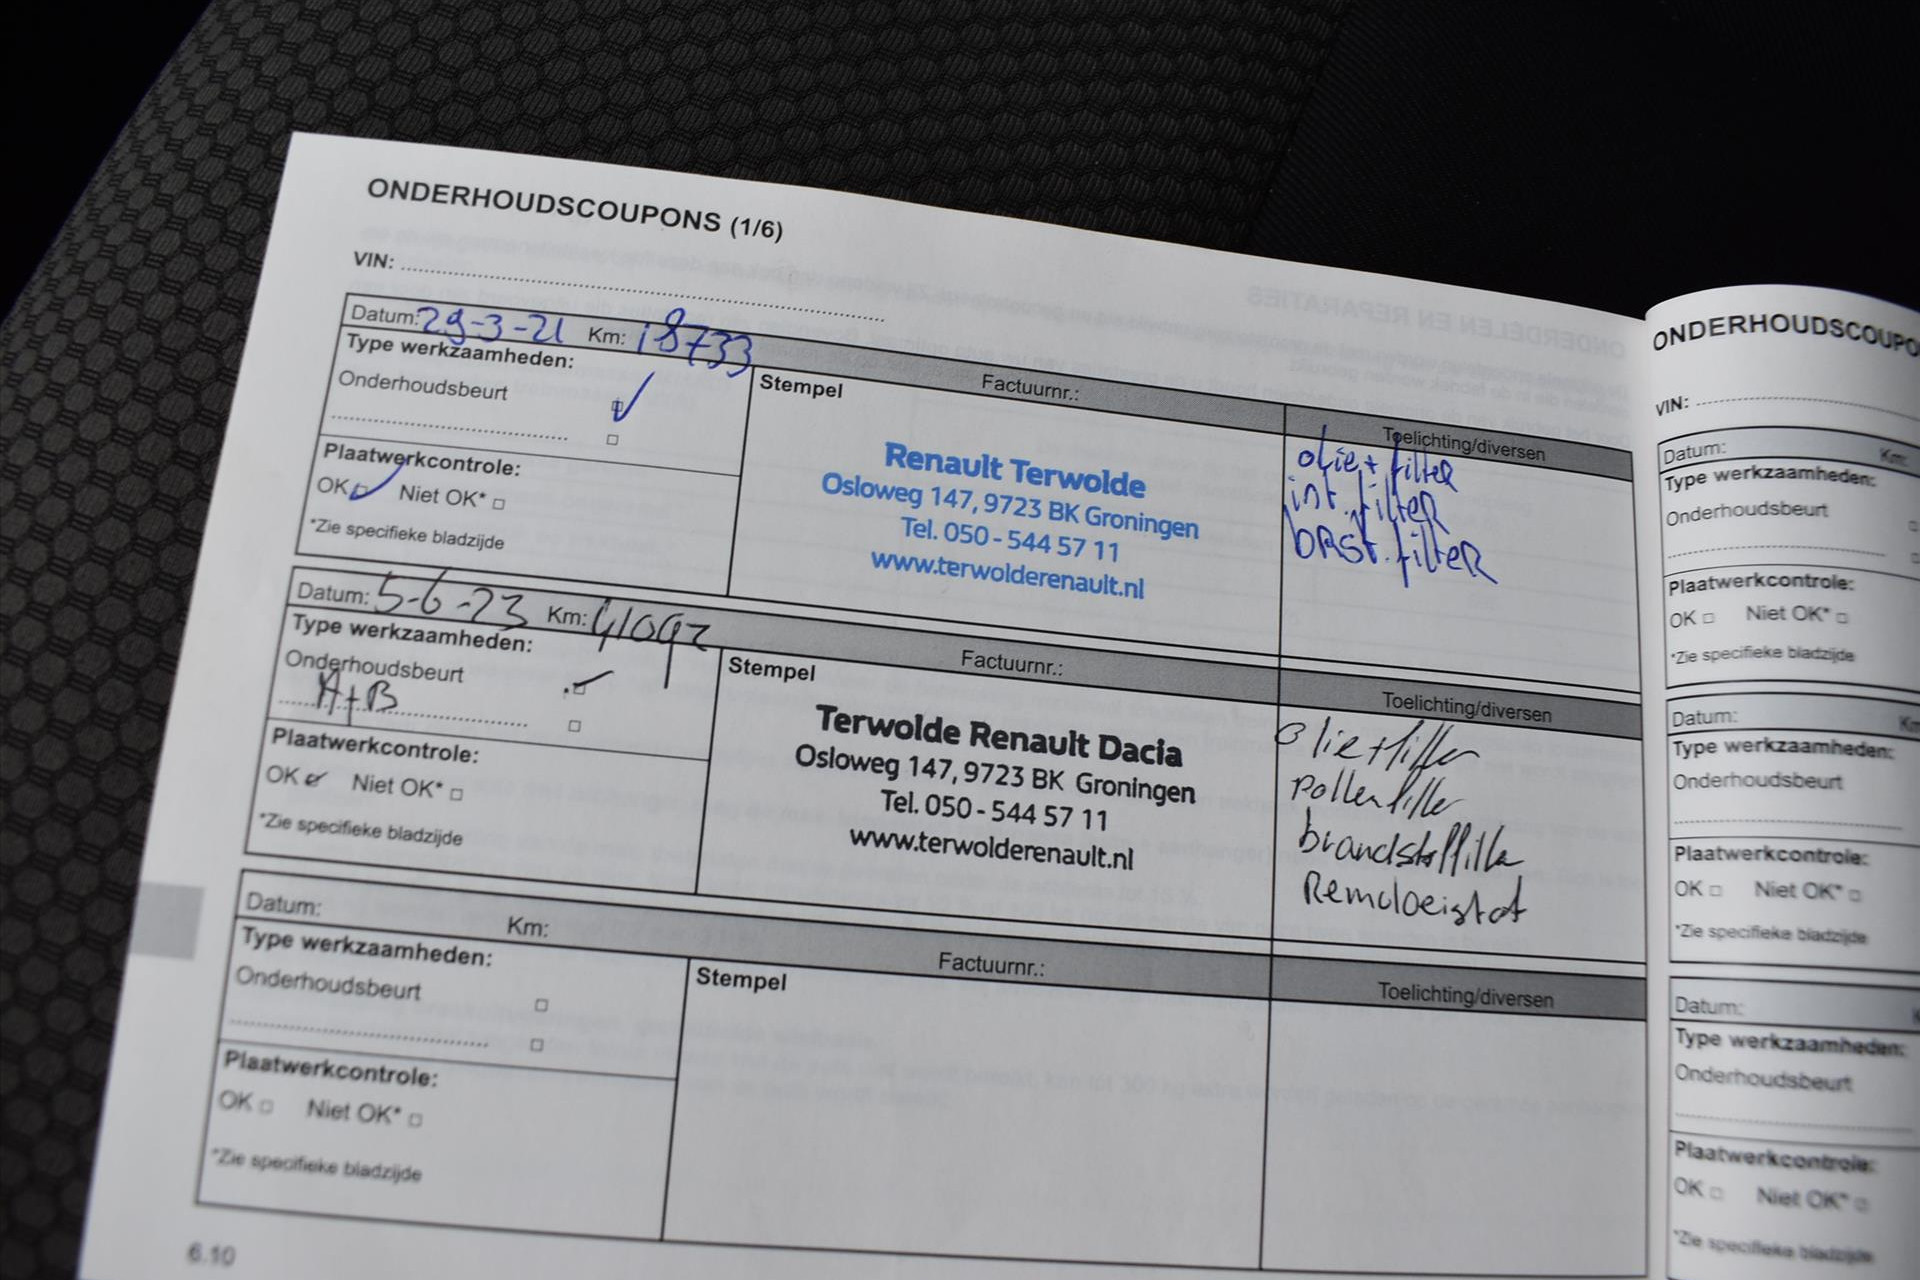 ONDERHOUDSCOUPONS (1/6)
VIN:
Datum: 29-3-21 Km: 18733
Type werkzaamheden:
Onderhoudsbeurt
Plaatwerkcontrole:
OK Niet OK*
*Zie specifieke bladzijde
Stempel
Factuurnr.:
Renault Terwolde
Osloweg 147, 9723 BK Groningen
Tel. 050 - 544 57 11
www.terwolderenault.nl
Toelichting/diversen
olie + filter
int. filter
brst. filter
Datum: 5-6-23 Km: 41092
Type werkzaamheden:
Onderhoudsbeurt
A+B
Plaatwerkcontrole:
OK Niet OK*
*Zie specifieke bladzijde
Stempel
Factuurnr.:
Terwolde Renault Dacia
Osloweg 147, 9723 BK Groningen
Tel. 050 - 544 57 11
www.terwolderenault.nl
Toelichting/diversen
olie + filter
pollenfilter
brandstoffilter
Remvloeistof
Datum:
Km:
Type werkzaamheden:
Onderhoudsbeurt
Plaatwerkcontrole:
OK Niet OK*
*Zie specifieke bladzijde
Stempel
Factuurnr.:
Toelichting/diversen
6.10
ONDERHOUDSCOUPO
VIN:
Datum: Km:
Type werkzaamheden:
Onderhoudsbeurt
Plaatwerkcontrole:
OK Niet OK*
*Zie specifieke bladzijde
Datum: Km
Type werkzaamheden:
Onderhoudsbeurt
Plaatwerkcontrole:
OK Niet OK*
*Zie specifieke bladzijde
Datum:
Type werkzaamheden:
Onderhoudsbeurt
Plaatwerkcontrole:
OK Niet OK*
*Zie specifieke bladzijde